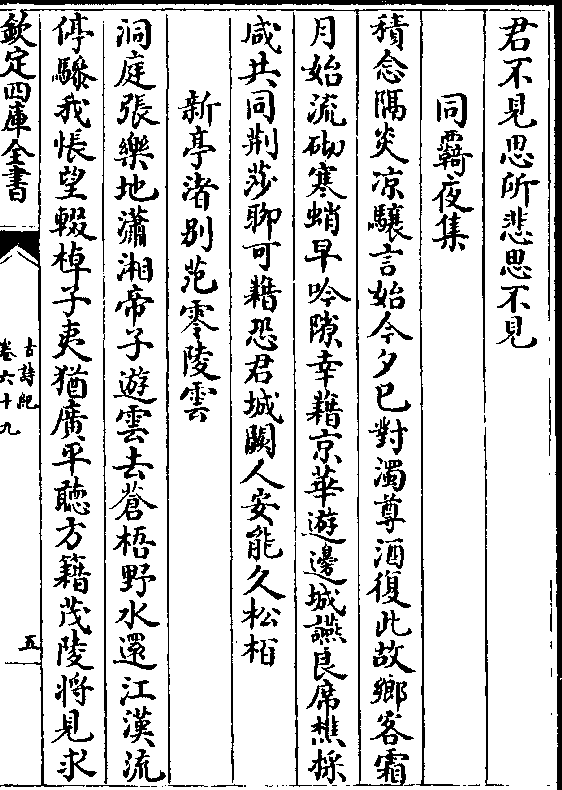 君不見思所悲思不見
同羈夜集
積念隔炎凉驤言始今夕已對濁尊酒復此故鄉客霜
月始流砌寒蛸早吟隙幸藉京華遊邊城讌良席樵採
咸共同荆莎聊可藉恐君城闕人安能久松栢
新亭渚别范零陵雲
洞庭張樂地瀟湘帝子遊雲去蒼梧野水還江漢流
停驂我悵望輟棹子夷猶廣平聽方籍茂陵將見求
欽定四庫全書
古詩紀
卷六十九
五